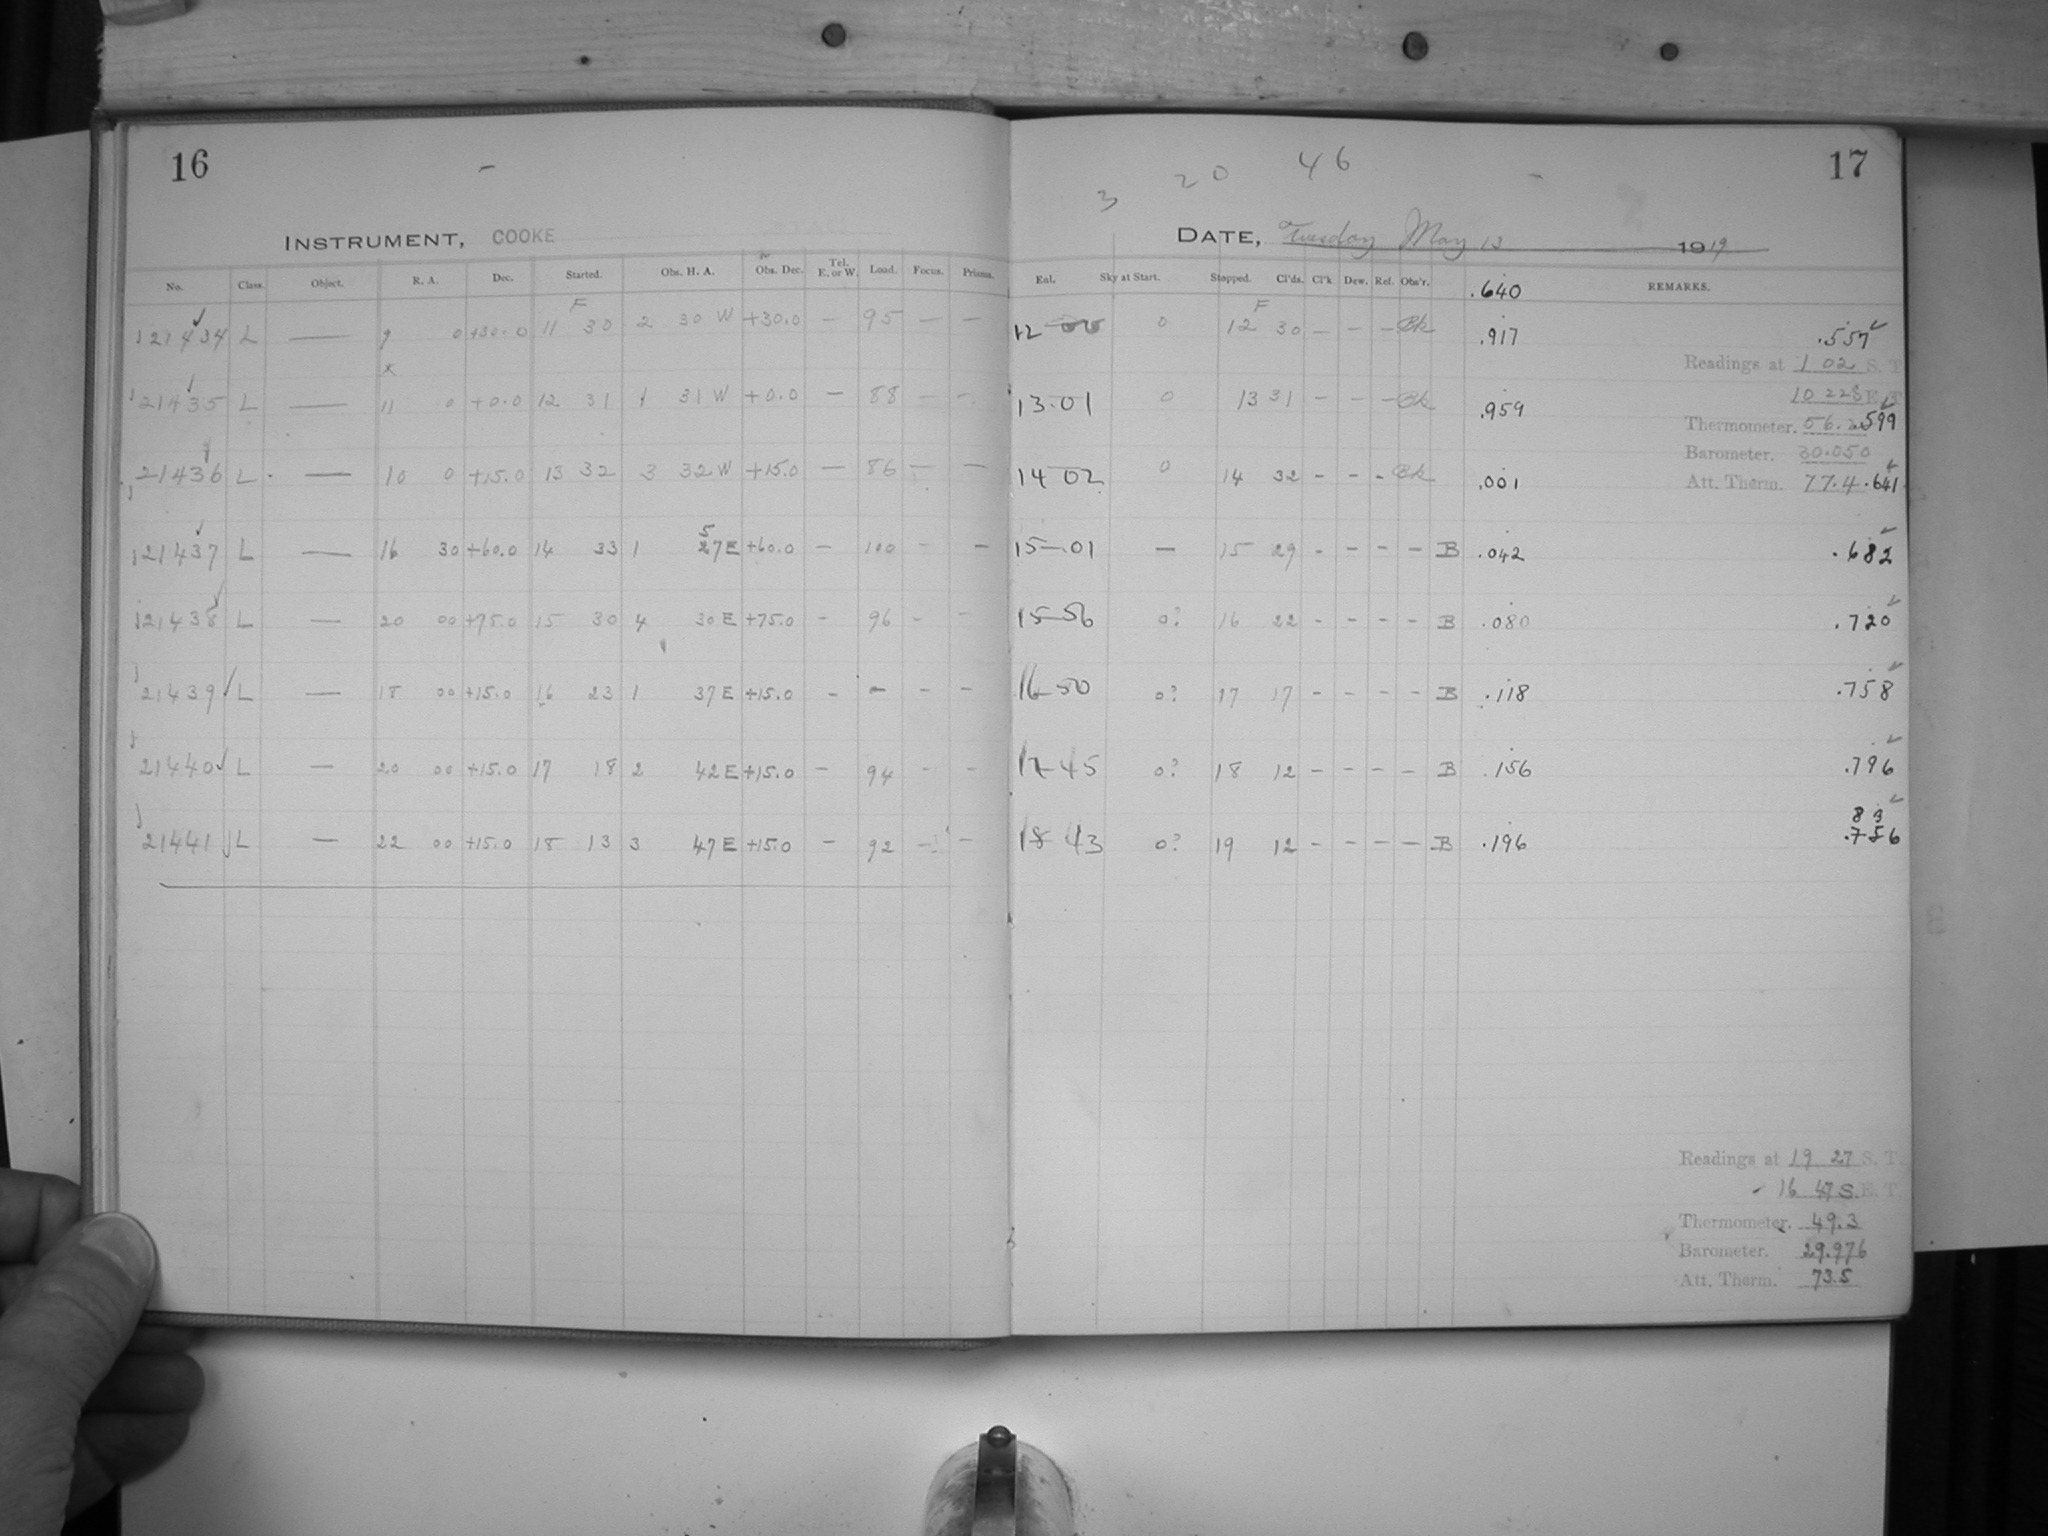 16
INSTRUMENT, COOKE
No. Class. Object. R. A. Dec. Started. Obs. H. A. Obs. Dec. Tel. E. or W. Load. Focus. Prisms.
21434 L — 9 0 +30.0 11 F 30 2 30 W +30.0 — 95 — —
21435 L — 11 0 +0.0 12 31 1 31 W +0.0 — 88 — —
21436 L — 10 0 +15.0 13 32 3 32 W +15.0 — 86 — —
21437 L — 16 30 +60.0 14 33 1 57 E +60.0 — 100 - —
21438 L — 20 00 +75.0 15 30 4 30 E +75.0 - 96 - -
21439 L — 18 00 +15.0 16 23 1 37 E +15.0 - - - -
21440 L — 20 00 +15.0 17 18 2 42 E +15.0 — 94 - -
21441 L — 22 00 +15.0 18 13 3 47 E +15.0 — 92 — —
3 20 46
17
DATE, Tuesday May 13 1919
Sky at Start. Stopped. Cl'ds. Cl'k Dew. Ref. Obs'r. .640 REMARKS.
12 00 0 12 F 30 — — — Bk .917 .557
Readings at 1 02 S. T.
13.01 0 13 31 - - — Bk .959 10 228 E. T.
Thermometer. .599
Barometer. 30.050
14 02 0 14 32 - - - Bk .001 Att. Therm. 77.4 .641
15 — 01 — 15 29 - - - — B .042 .682
15 — 56 0? 16 22 - - - - B .080 .720
16 — 50 0? 17 17 - - - - B .118 .758
17 — 45 0? 18 12 — - - — B .156 .796
18 43 0? 19 12 - - — — B .196 .756
Readings at 19 27 S. T.
16 47 S. E. T.
Thermometer. 49.3
Barometer. 29.976
Att. Therm. 73.5